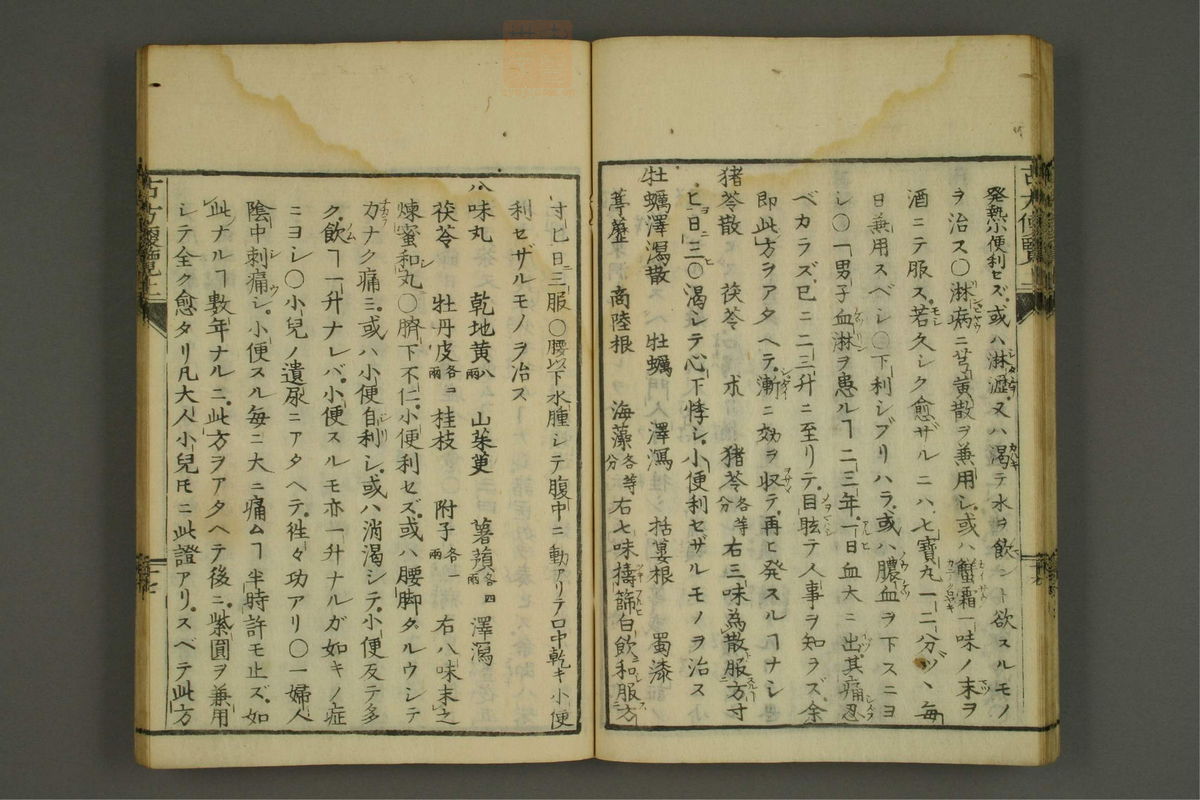 発熱小便利セズ。或ハ淋瀝。又ハ渇テ水ヲ飲ント欲スルモノ
ヲ治ス〇淋病ニ芒黄散ヲ兼用シ。或ハ蟹霜一味ノ末ヲ
酒ニテ服ス。若久シク愈ザルニハ、七寶丸一二分ヅヽ毎
日兼用スベシ〇下利シブリハラ。或ハ膿血ヲ下スニヨ
シ〇一男子血淋ヲ患ルヿ二三年。一日血大ニ出其痛忍
ベカラズ。已ニ二三升ニ至リテ。目眩テ人事ヲ知ラズ。余
即此方ヲアタヘテ。漸ニ効ヲ収テ。再ヒ発スルヿナシ
猪苓散 茯苓 朮 猪苓各等分 右三味為散服方寸
ヒ日三〇渇シテ心下悸シ。小便利セザルモノヲ治ス
牡蠣澤瀉散 牡蠣 澤瀉 括蔞根 蜀漆
葶藶 商陸根 海藻各等分 右七味擣篩白飲和服方
寸ヒ日三服〇腰以下水腫シテ腹中ニ動アリテ口中乾キ小便
利セザルモノヲ治ス
八味丸 乾地黄八兩 山茱萸 薯蕷各四兩 澤瀉
茯苓 牡丹皮各三兩 桂枝 附子各一兩 右八味末之
煉蜜和丸〇臍下不仁。小便利セズ。或ハ腰脚ダルウシテ
カナク痛ミ。或ハ小便自利シ。或ハ消渇シテ。小便反テ多
ク。飲ヿ一升ナレバ。小便スルモ亦一升ナルガ如キノ症
ニヨシ〇小兒ノ遺尿ニアタヘテ。徃々功アリ〇一婦人
陰中刺痛シ。小便スル毎ニ大ニ痛ムヿ半時許モ止ズ。如
此ナルヿ數年ナルニ。此方ヲアタヘテ後ニ。紫圓ヲ兼用
シテ全ク愈タリ凡大人小兒トモニ此證アリ。スベテ此方